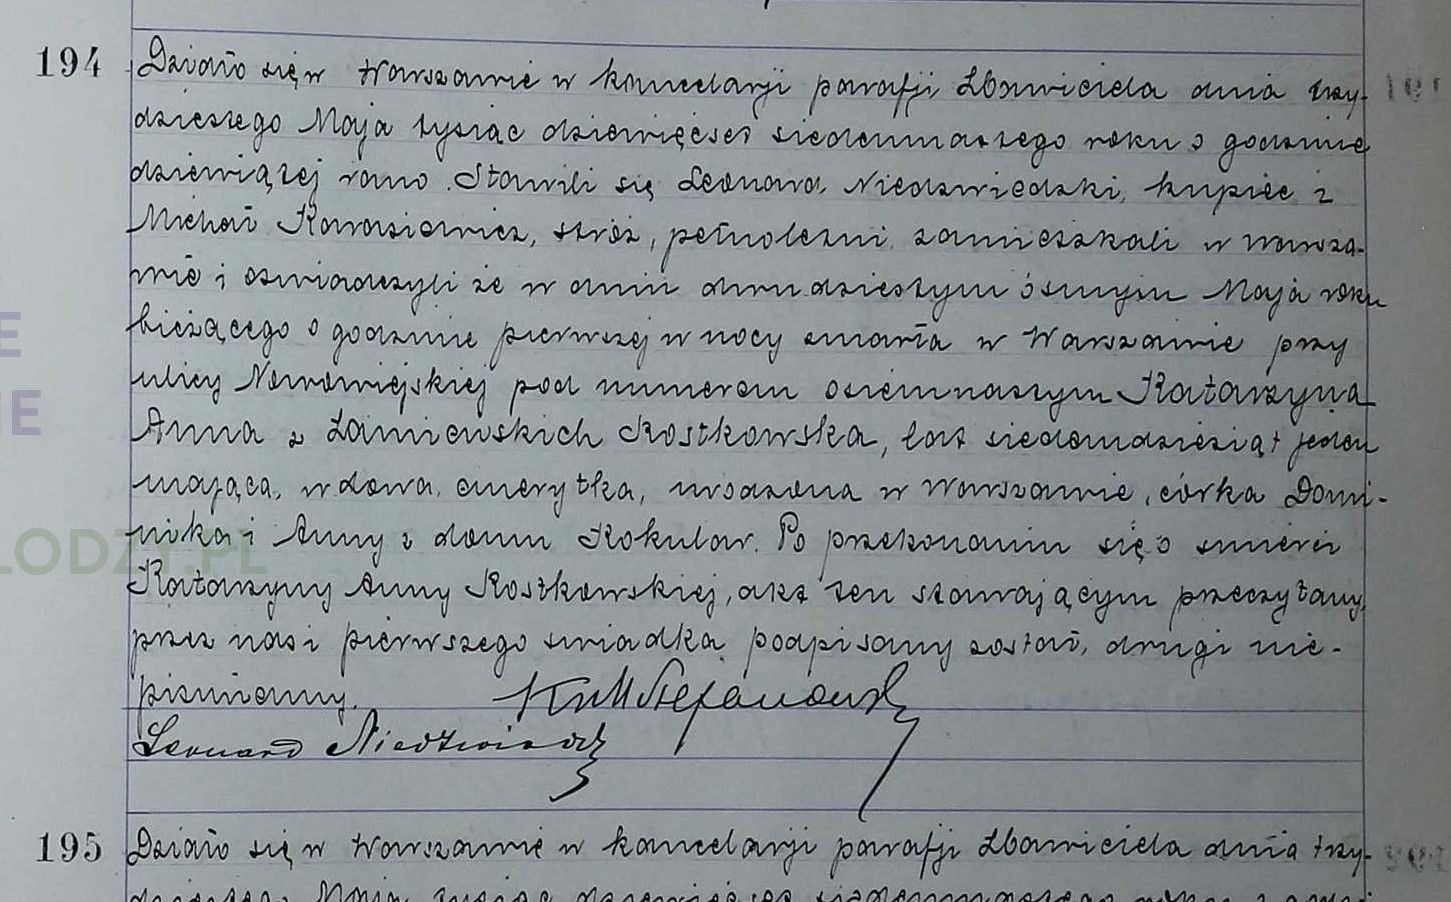 194 Działo się w Warszawie w kancelarji parafji Zbawiciela dnia trzy-
dziestego Maja tysiąc dziewięćset siedemnastego roku o godzinie
dziewiątej rano. Stawili się Leonard Niedzwiedzki, kupiec i
Michał Karasiewicz, stróż, pełnoletni, zamieszkali w Warsza-
wie i oswiadczyli że w dniu dwudziestym ósmym Maja roku
bieżącego o godzinie pierwszej w nocy zmarła w Warszawie przy
ulicy Nowowiejskiej pod numerem osiemnastym Katarzyna
Anna z Łaniewskich Kostkowska, lat siedemdziesiąt jeden
mająca, wdowa, emerytka, urodzona w Warszawie, córka Domi-
nika i Anny z domu Kokular. Po przekonaniu się o smierci
Katarzyny Anny Kostkowskiej, akt ten stawającym przeczytany,
przez nas i pierwszego swiadka podpisany został, drugi nie-
pismienny.
Leonard Niedzwiedzki
195 Działo się w Warszawie w kancelarji parafji Zbawiciela dnia trzy-
dziestego Maja tysiąc dziewięćset siedemnastego roku o